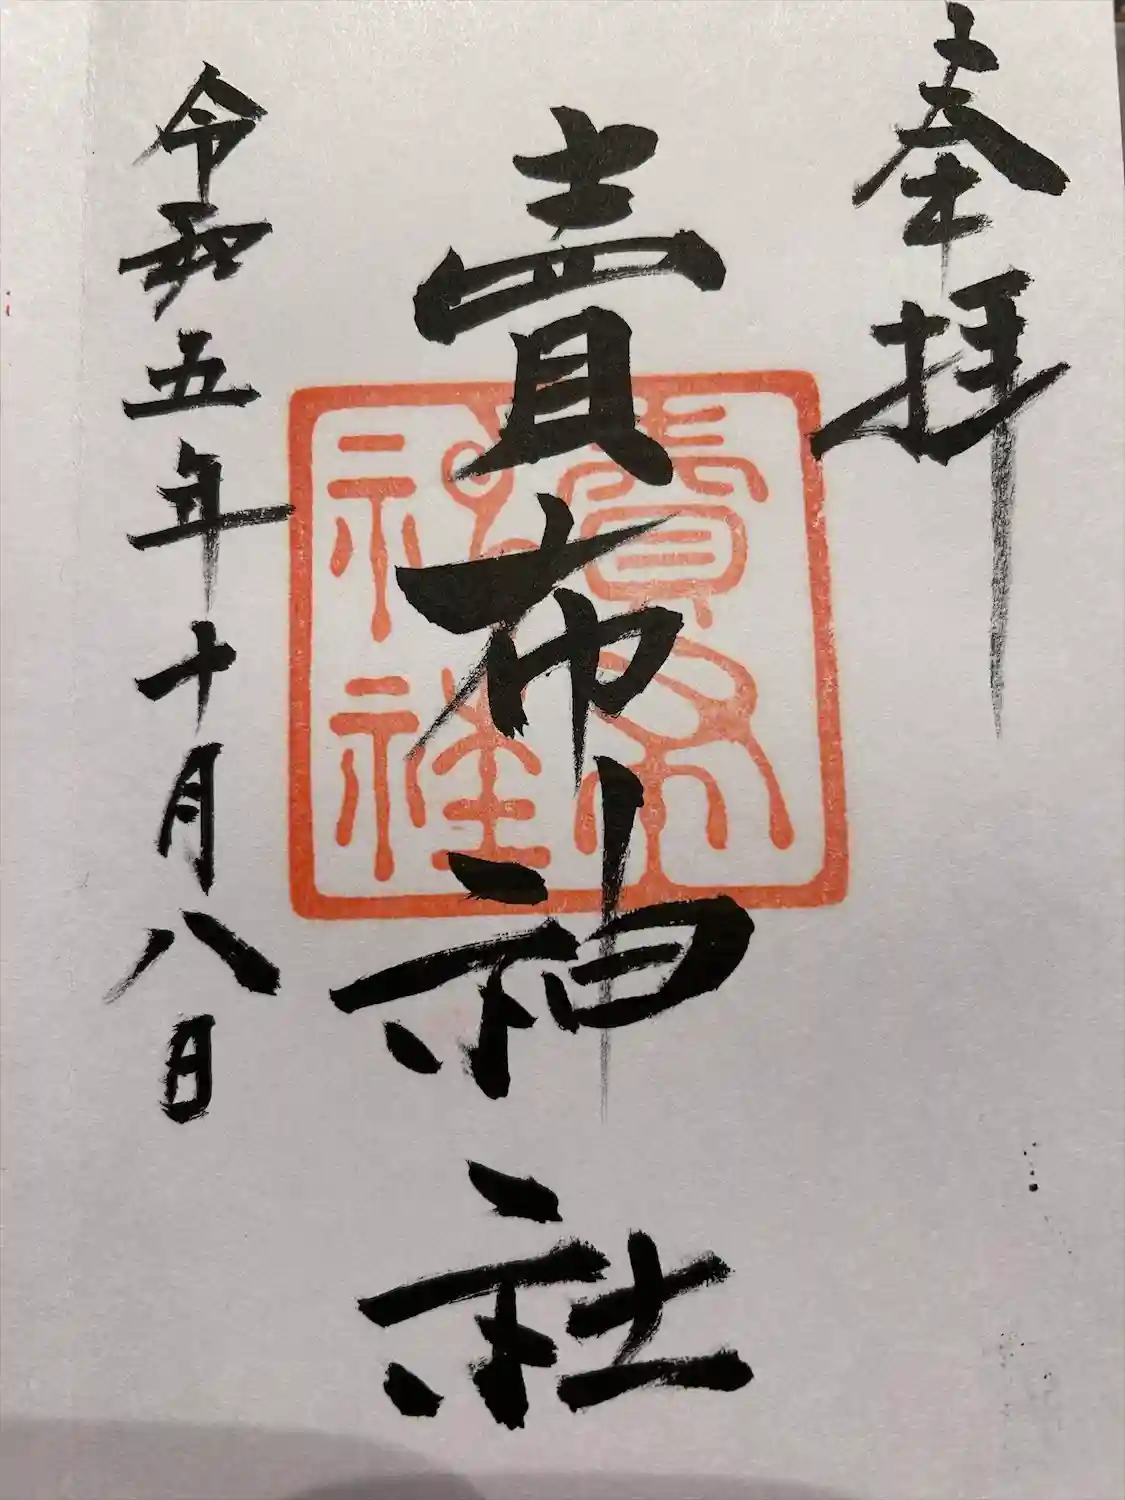 奉拝
賣布神社
賣布
神社
令和五年十月八日